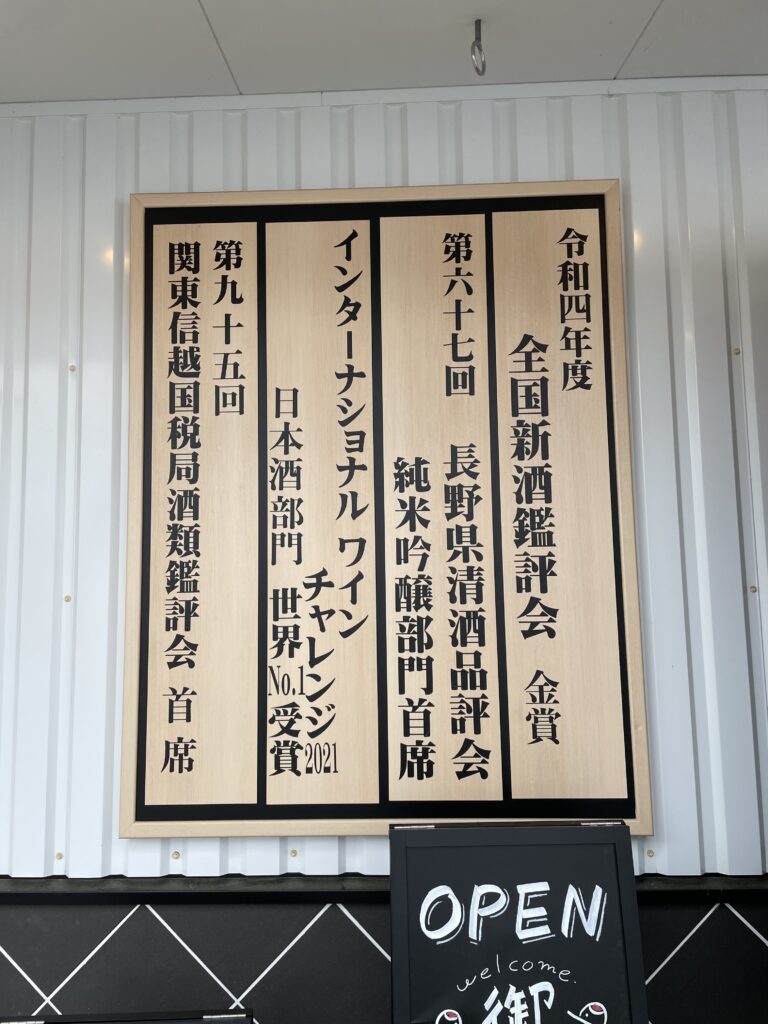 令和四年度
全国新酒鑑評会 金賞
第六十七回 長野県清酒品評会
純米吟醸部門首席
インターナショナル ワイン
チャレンジ2021
日本酒部門 世界No.1受賞
第九十五回
関東信越国税局酒類鑑評会 首席
OPEN
welcome.
御